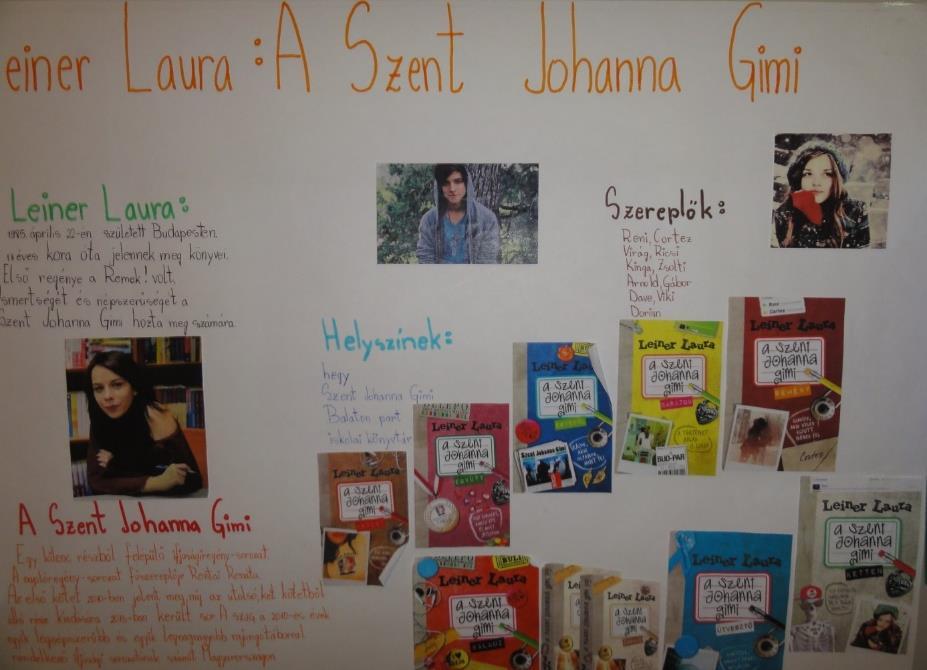 einer Laura : A Szent Johanna Gimi
Leiner Laura:
1985. április 22-én született Budapesten.
éves kora óta jelennek meg könyvei.
Első regénye a Remek! volt.
Ismertségét és népszerűségét a
Szent Johanna Gimi hozta meg számára.
Szereplők:
Reni, Cortez
Virág, Ricsi
Kinga, Zsolti
Arnold, Gábor
Dave, Viki
Dorián
Helyszínek:
hegy
Szent Johanna Gimi
Balaton part
iskolai könyvtár
A Szent Johanna Gimi
Egy kilenc részből felépülő ifjúságiregény-sorozat
A naplóregény-sorozat főszereplője Rentai Renáta
Az első kötet 2010-ben jelent meg, míg az utolsó, két kötetből
álló rész kiadására 2013-ban került sor. A széria a 2010-es évek
egyik legnépszerűbb és egyik legnagyobb rajongótáborral
rendelkező ifjúsági sorozatának számít Magyarországon
Leiner Laura
a Szent
Johanna
gimi
Leiner Laura
a Szent
Johanna
gimi
EGYÜTT
Leiner La
a Szent
Johanna
gimi
Szent Johanna Gimi
Leiner Laura
a Szent
Johanna
gimi
BARÁTOK
BUD-PAR
Reni
Cortez
Leiner Laura
a Szent
Johanna
gimi
REMÉNY
Cortez
Leiner Laura
a Szent
Johanna
gimi
VÁLASZ
Leiner Laura
a Szent
Johanna
gimi
Leiner Laura
a Szent
Johanna
gimi
ÚTVESZTŐ
Leiner Laura
a Szent
Johanna
gimi
KETTEN